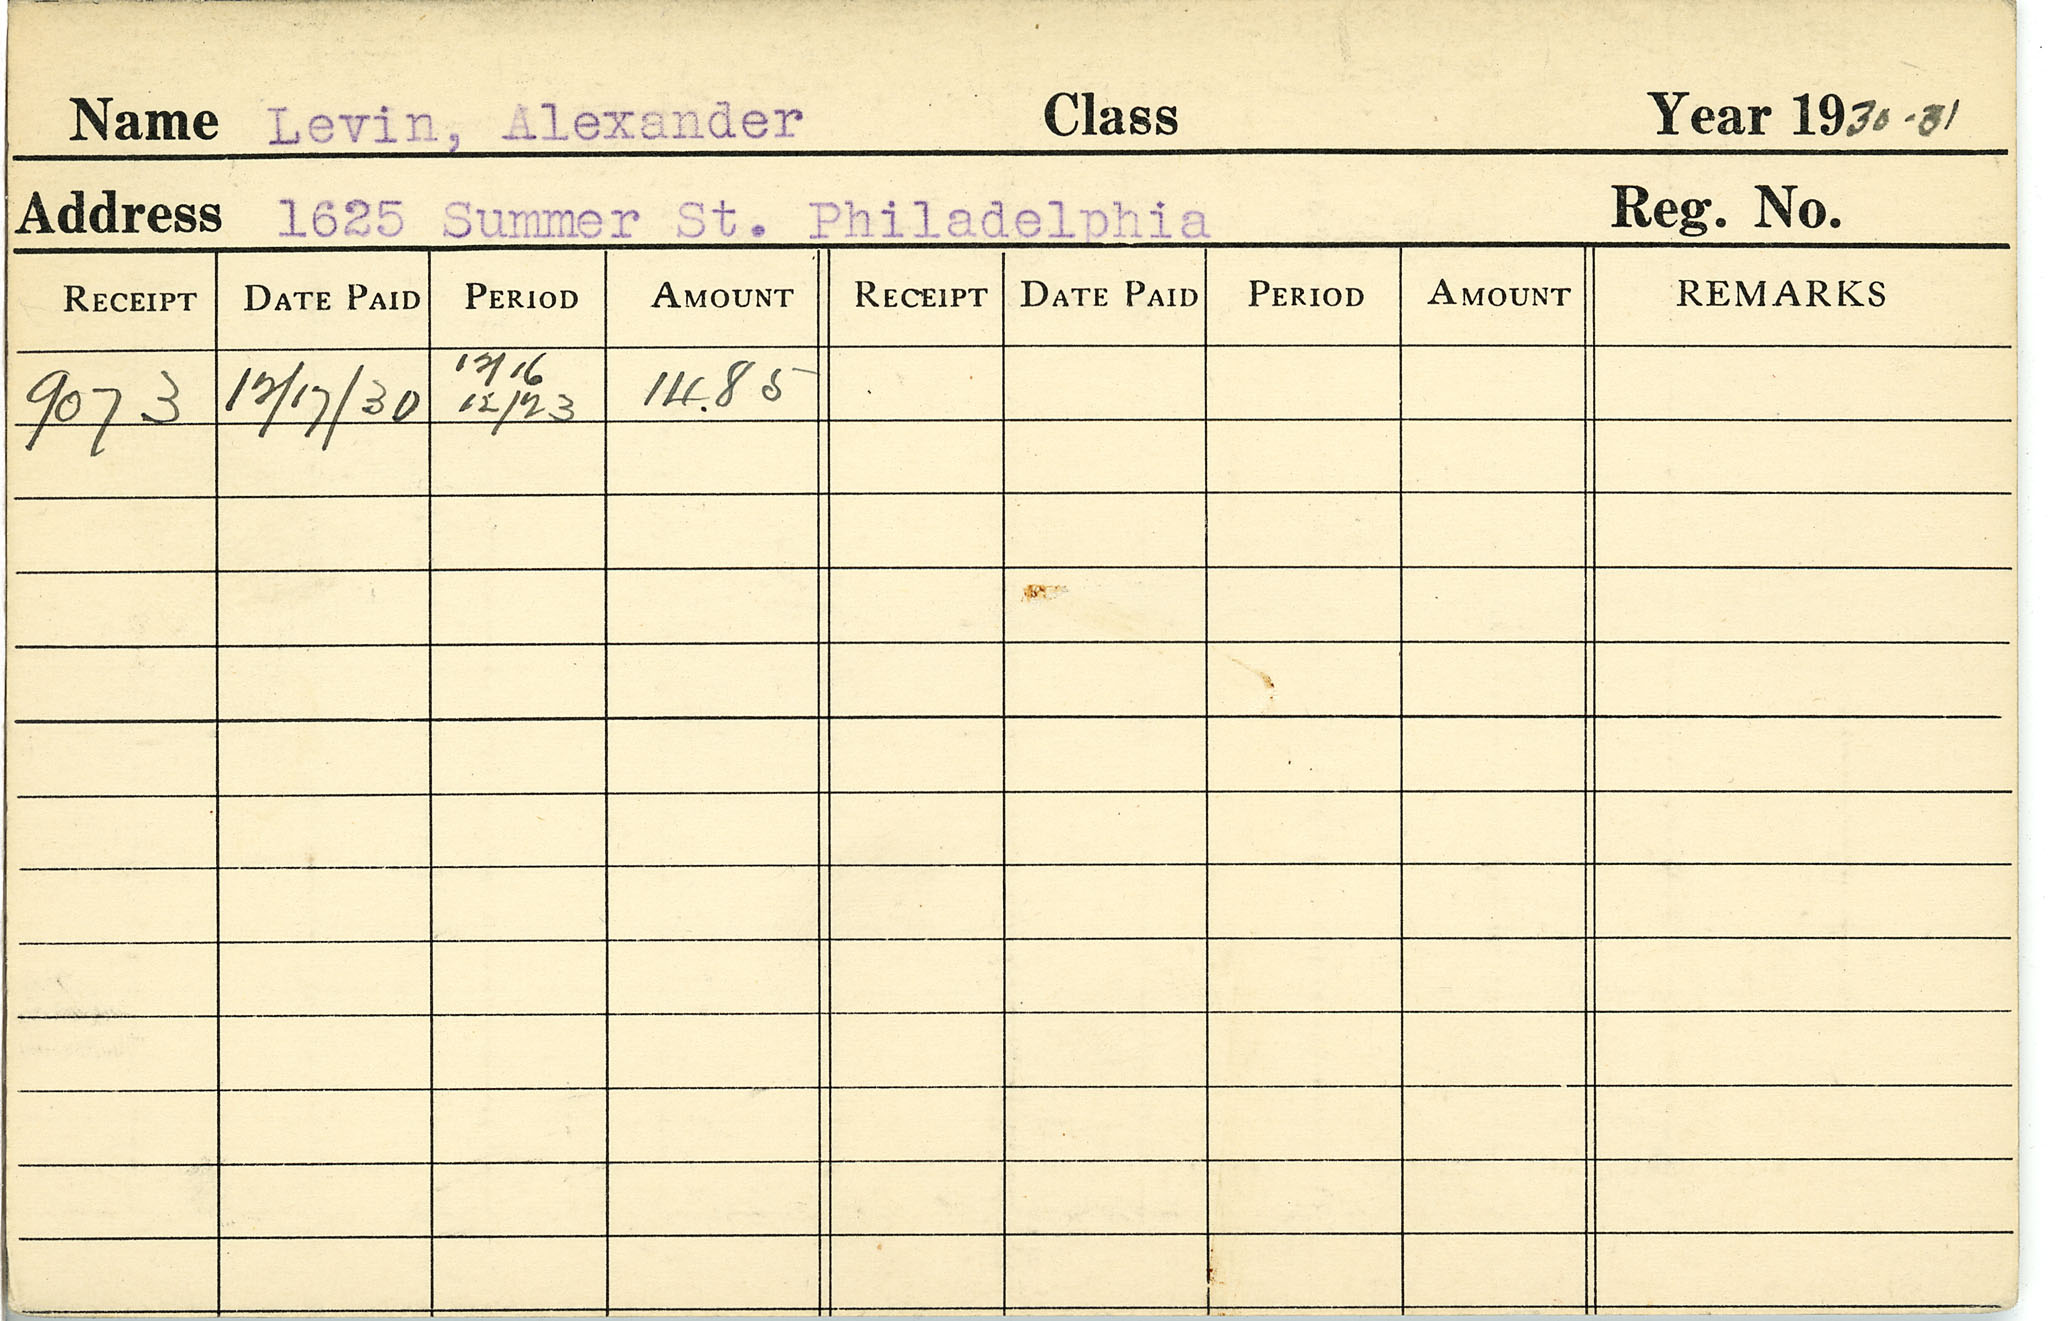 Name Levin, Alexander Class Year 1930-31
Address 1625 Summer St. Philadelphia Reg. No.
RECEIPT DATE PAID PERIOD AMOUNT RECEIPT DATE PAID PERIOD AMOUNT REMARKS
9073 12/17/30 12/16 14.85
12/23